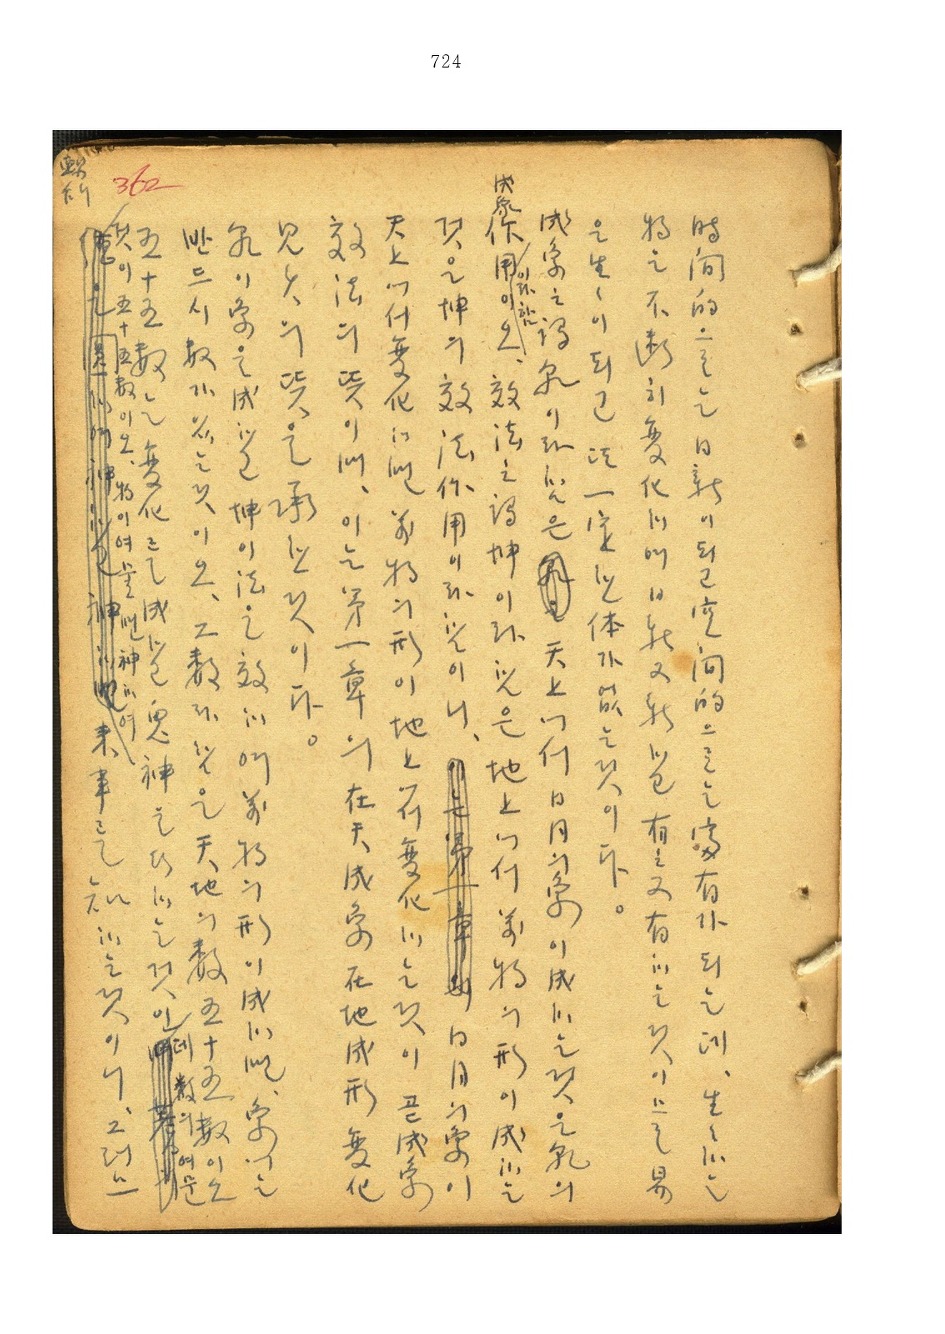 724
362
時間的으로는 日新이되고 空間的으로는 富有가 되는데、生生하는
物은 不断히 変化하며 日新又新하고 有之又有하는것이므로 易
은 生生이되고 또 一定한 体가 없는것이다。
成象之謂乾이라함은 天上에서 日月의象이 成하는것은 乾의
成象
作用이오、效法之謂坤이라함은 地上에서 萬物의形이 成하는
이라함
것은 坤의 效法作用이라함이니、日月의象이
天上에서 変化하면 萬物의形이 地上에서 変化하는것이 곧 成象
效法의 뜻이며、이는 第一章의 在天成象 在地成形 変化
見矣의 뜻을 承한것이다。
乾이 象을 成하고 坤이 法을 效하여 萬物의形이 成하면、象에는
반드시 数가 있는것이오、그 数라함은 天地의 数 五十五数이오
五十五数는 変化를 成하고 鬼神을 行하는것인
데 数의
것이 五十五数이오、
神하여
来事를 知하는것이니、그러므